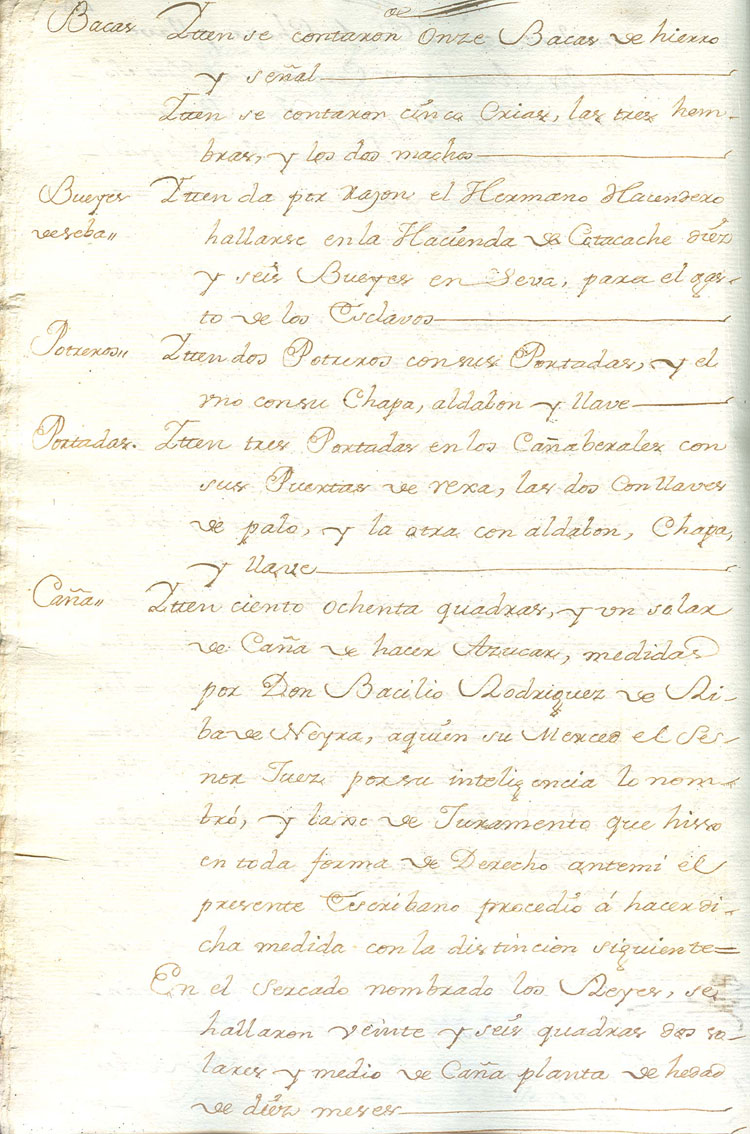 de
Bacas Ytten se contaron Onze Bacas de hierro
y señal
Ytten se contaron cinco Crias, las tres hem-
bras, y los dos machos
Bueyes Ytten da por razon el Hermano Hacendero
de seba" hallarse en la Hacienda de Cotacache diez
y seis Bueyes en Seva, para el gas-
to de los Esclavos
Potreros" Ytten dos Potreros con sus Portadas, y el
vno con su Chapa, aldabon y llave
Portadas. Ytten tres Portadas en los Cañaberales con
sus Puertas de rexa, las dos con llaves
de palo, y la otra con aldabon, Chapa,
y llave
Caña" Ytten ciento ochenta quadras, y vn solar
de Caña de hacer Azucar, medidas
por Don Bacilio Rodriguez de Ri-
ba de Neyra, aquien su Merced el Se-
nor Juez por su inteligencia lo nom-
bró, y de Juramento que hisso
en toda forma de Derecho antemi el
presente Escribano procedio á hacer di-
cha medida con la distincion siguiente=
En el Sercado nombrado los Reyes, se
hallaron veinte y seis quadras dos so-
lares y medio de Caña planta de hedad
de diez meses